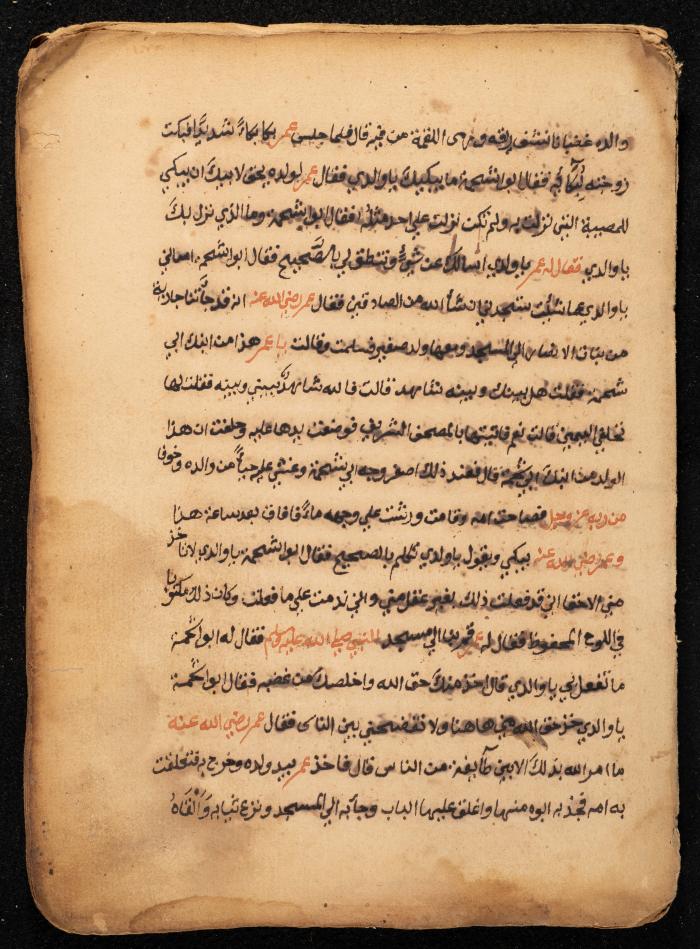 والده غضبانا نشف ريقه ورمى اللقمة من فيه قال فلما جلس عمر بكا بكاءً شديدًا فبكت
زوجته لبكائه فقال ابو اشحمة ما يبكيك يا والدي فقال عمر لولده يحق لابيك ان يبكي
للمصيبة التي نزلت به ولم تكن نزلت علي احد مثله فقال ابو اشحمة وما الذي نزل بك
يا والدي فقال له عمر يا ولدي اسالك عن شيءٍ وتنطق لي بالصحيح فقال ابو اشحمة اسالني
يا والدي عما شئت ستجدني ان شا الله من الصادقين فقال عمر رضي الله عنه انه قد جائتنا جارية
من بنات الانصار الي المسجد ومعها ولد صغير فسلمت وقالت يا عمر هذا من ابنك ابي
شحمة فقلت هل بينك وبينه شاهد قالت الله شاهدًا بيني وبينه فقلت لها
تحلفي اليمين قالت نعم فاتيتها بالمصحف الشريف فوضعت يدها عليه وحلفت ان هذا
الولد من ابنك ابي شحمة قال فعند ذلك اصفر وجه ابي شحمة وغشي عليه حياءً من والده وخوفا
من ربه عز وجل فصاحت امه وقامت ورشت علي وجهه ماءً فافاق بعد ساعة هذا
وعمر رضي الله عنه يبكي ويقول يا ولدي تكلم بالصحيح فقال ابو اشحمة يا والدي لا تاخذ
مني الاحقا اني قد فعلت ذلك بغير عقل مني واني ندمت علي ما فعلت وكان ذلك مكتوبا
في اللوح المحفوظ فقال له عمر قم بنا الي مسجد النبي صلي الله عليه وسلم فقال له ابو اشحمة
ما تفعل بي يا والدي قال اخذ منك حق الله واخلصك من غضبه فقال ابو اشحمة
يا والدي خذ حق الله مني هاهنا ولا تفضحني بين الناس فقال عمر رضي الله عنه
ما امر الله بذلك الا بين طآيفة من الناس قال فاخذ عمر بيد ولده وخرج به فتعلقت
به امه فجذبه ابوه منها واغلق عليها الباب وجآ به الي المسجد ونزع ثيابه وَالْقَاهُ